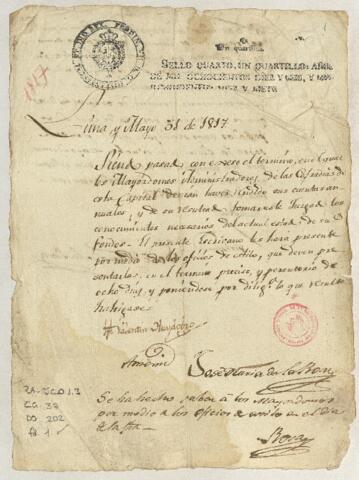 Un quartillo
SELLO QUARTO, UN QUARTILLO, AÑOS
DE MIL OCHOCIENTOS DIEZ Y SEIS, Y
OCHOCIENTOS DIEZ Y SIETE
1817
Lima, y Mayo 31 de 1817.
Siendo pasado con exceso el termino, en el que
los Mayordomos, ó Administradores de las Cofradias de
esta Capital devian haver rendido sus cuentas an-
nuales, y de su resultado, tomar este Juzgado los
conocimientos necesarios del actual estado de sus
fondos: El presente Escribano les hará presente
por medio de los oficios de estilo, que deven pre-
sentarlas en el termino preciso, y perentorio de
ocho dias, y poniendose por dilig.a lo que resulte
traigase
Antemi
Jose Maria de la Rosa
Se ha hecho saber á los Mayordomos
por medio de los oficios de estilo en el dia
de la fha
Rosa
CO 1.3
CG. 32
DO 202
fo. 1